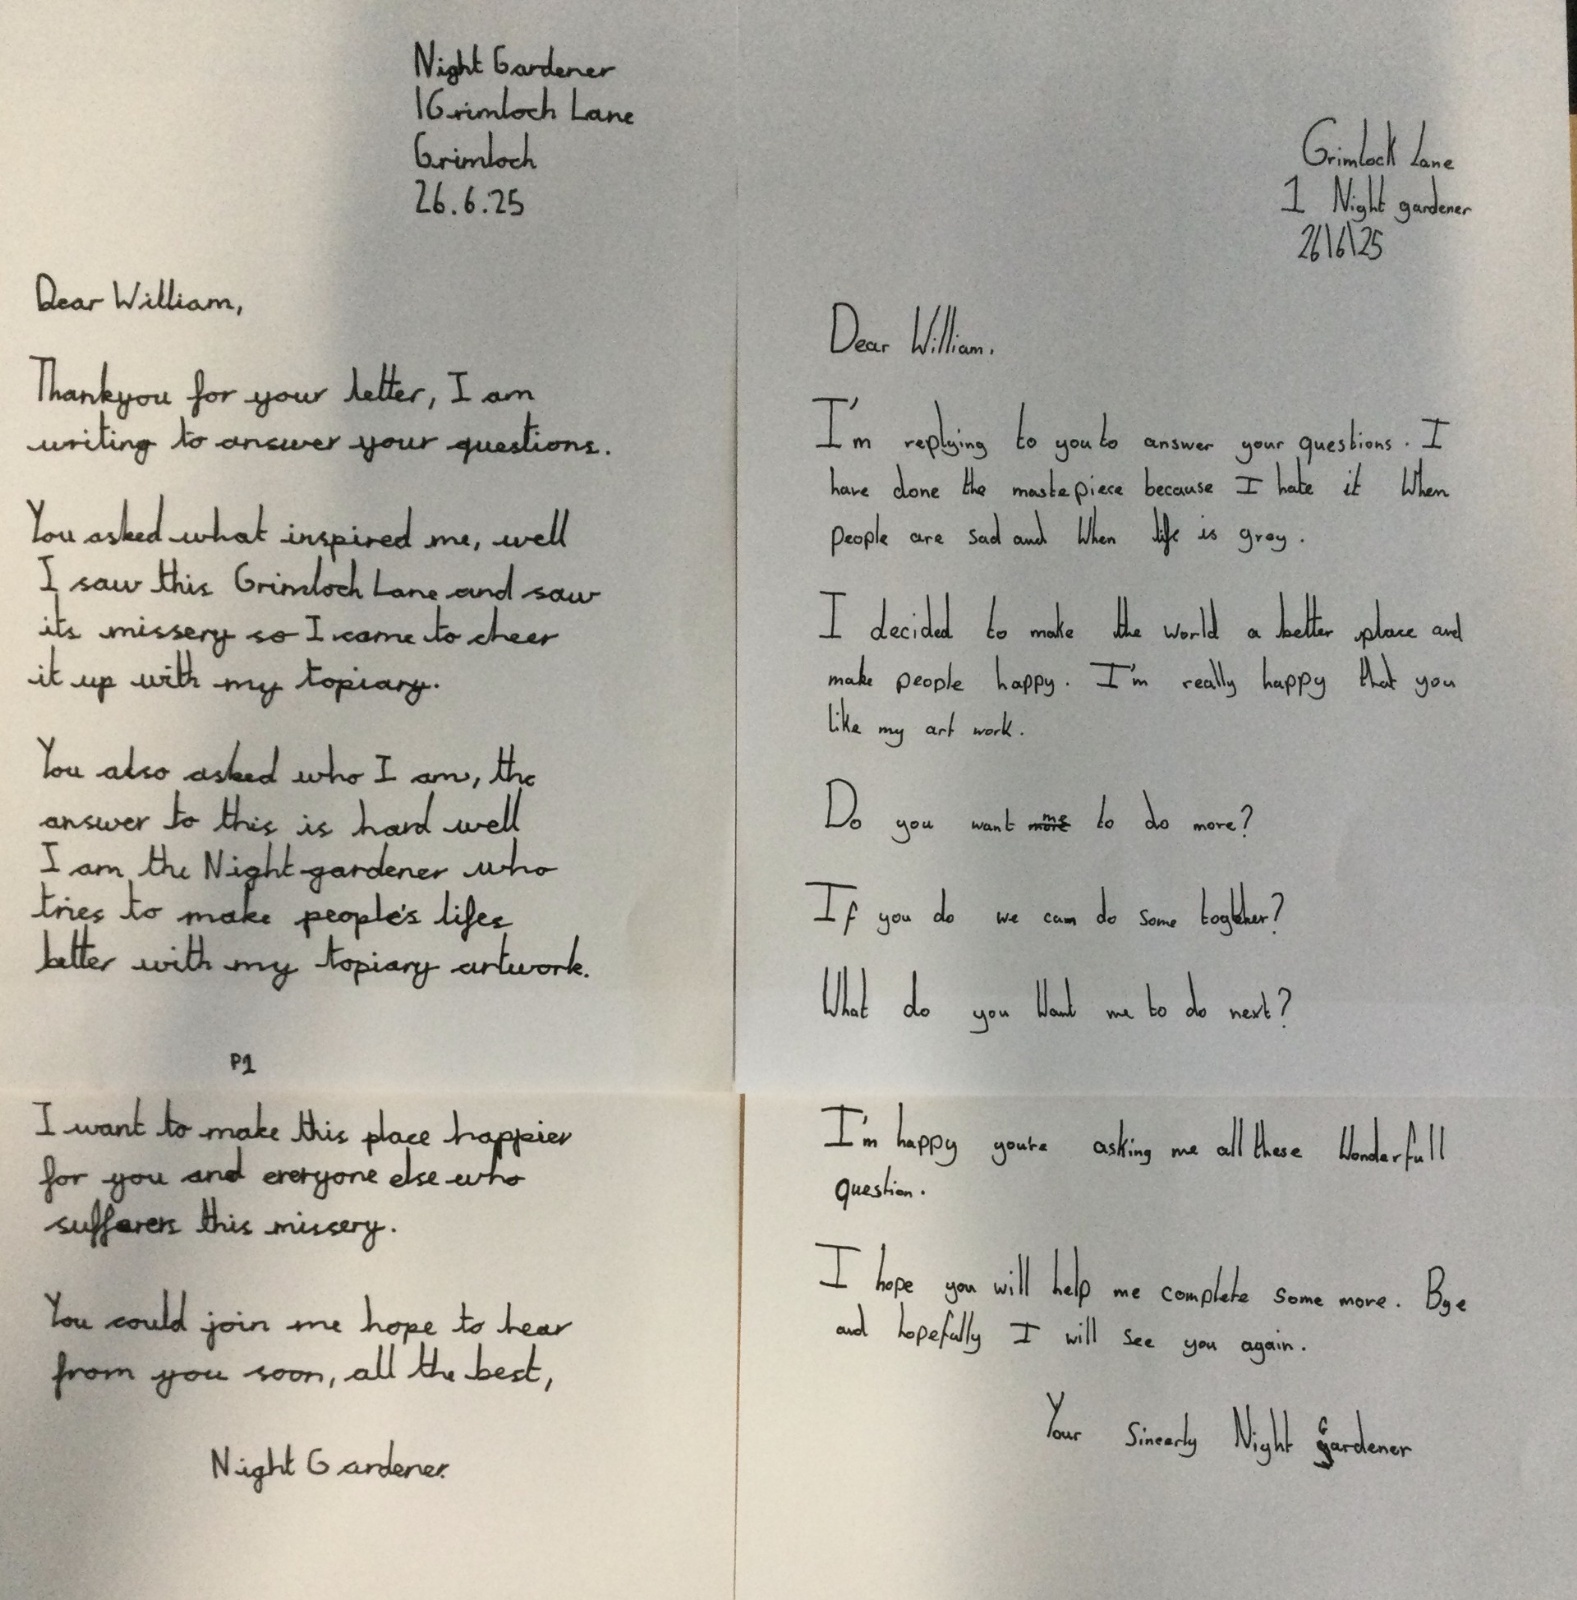 Night Gardener
1 Grimloch Lane
Grimloch
26.6.25
Dear William,
Thankyou for your letter, I am
writing to answer your questions.
You asked what inspired me, well
I saw this Grimloch Lane and saw
its missery so I came to cheer
it up with my topiary.
You also asked who I am, the
answer to this is hard well
I am the Night-gardener who
tries to make people's lifes
better with my topiary artwork.
P1
I want to make this place happier
for you and everyone else who
sufferers this missery.
You could join me hope to hear
from you soon, all the best,
Night Gardener
Grimlock Lane
1 Night gardener
26\6\25
Dear William.
I'm replying to you to answer your questions. I
have done the mastepiece because I hate it When
people are sad and When life is gray.
I decided to make the world a better place and
make people happy. I'm really happy that you
like my art work.
Do you want me to do more?
If you do we can do some together?
What do you Want me to do next?
I'm happy you're asking me all these Wonderfull
question.
I hope you will help me complete some more. Bye
and hopefully I will see you again.
Your Sincerly Night Gardener